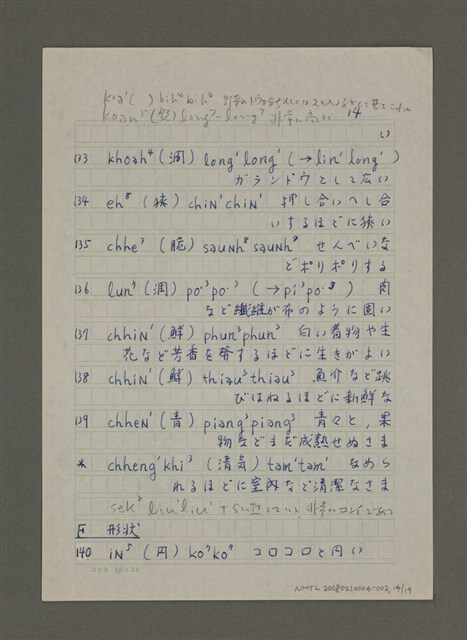 koaⁿ ( ) bih⁴ bih⁴
koan⁵ (懸) long³-long³ 非常に高い 14
い
133 khoah⁴ (濶) long¹long¹ (→lin¹long¹)
ガランドウとして広い
134 eh⁸ (狹) chiN¹chiN¹ 押し合いへし合
いするほどに狭い
135 chhe³ (脆) sauNh⁸sauNh⁸ せんべいな
どポリポリする
136 lun⁷ (潤) po·³po·³ (→pi³po·³) 肉
など繊維が布のように固い
137 chhiN¹ (鮮) phun³phun³ 白い着物や生
花など芳香を發するほどに生きがよい
138 chhiN¹ (鮮) thiau³thiau³ 魚介など跳
びはねるほどに新鮮な
139 chheN¹ (青) piang³piang³ 青々と,果
物などまだ成熟せぬさま
* chheng¹khi³ (清気) tam¹tam¹ なめら
れるほどに室內など清潔なさま
sek⁸ liu¹liu¹ 非常に
F 形状
140 iN⁵ (円) ko⁷ko⁷ コロコロと円い
NMTL 20080210004-002, 14/19